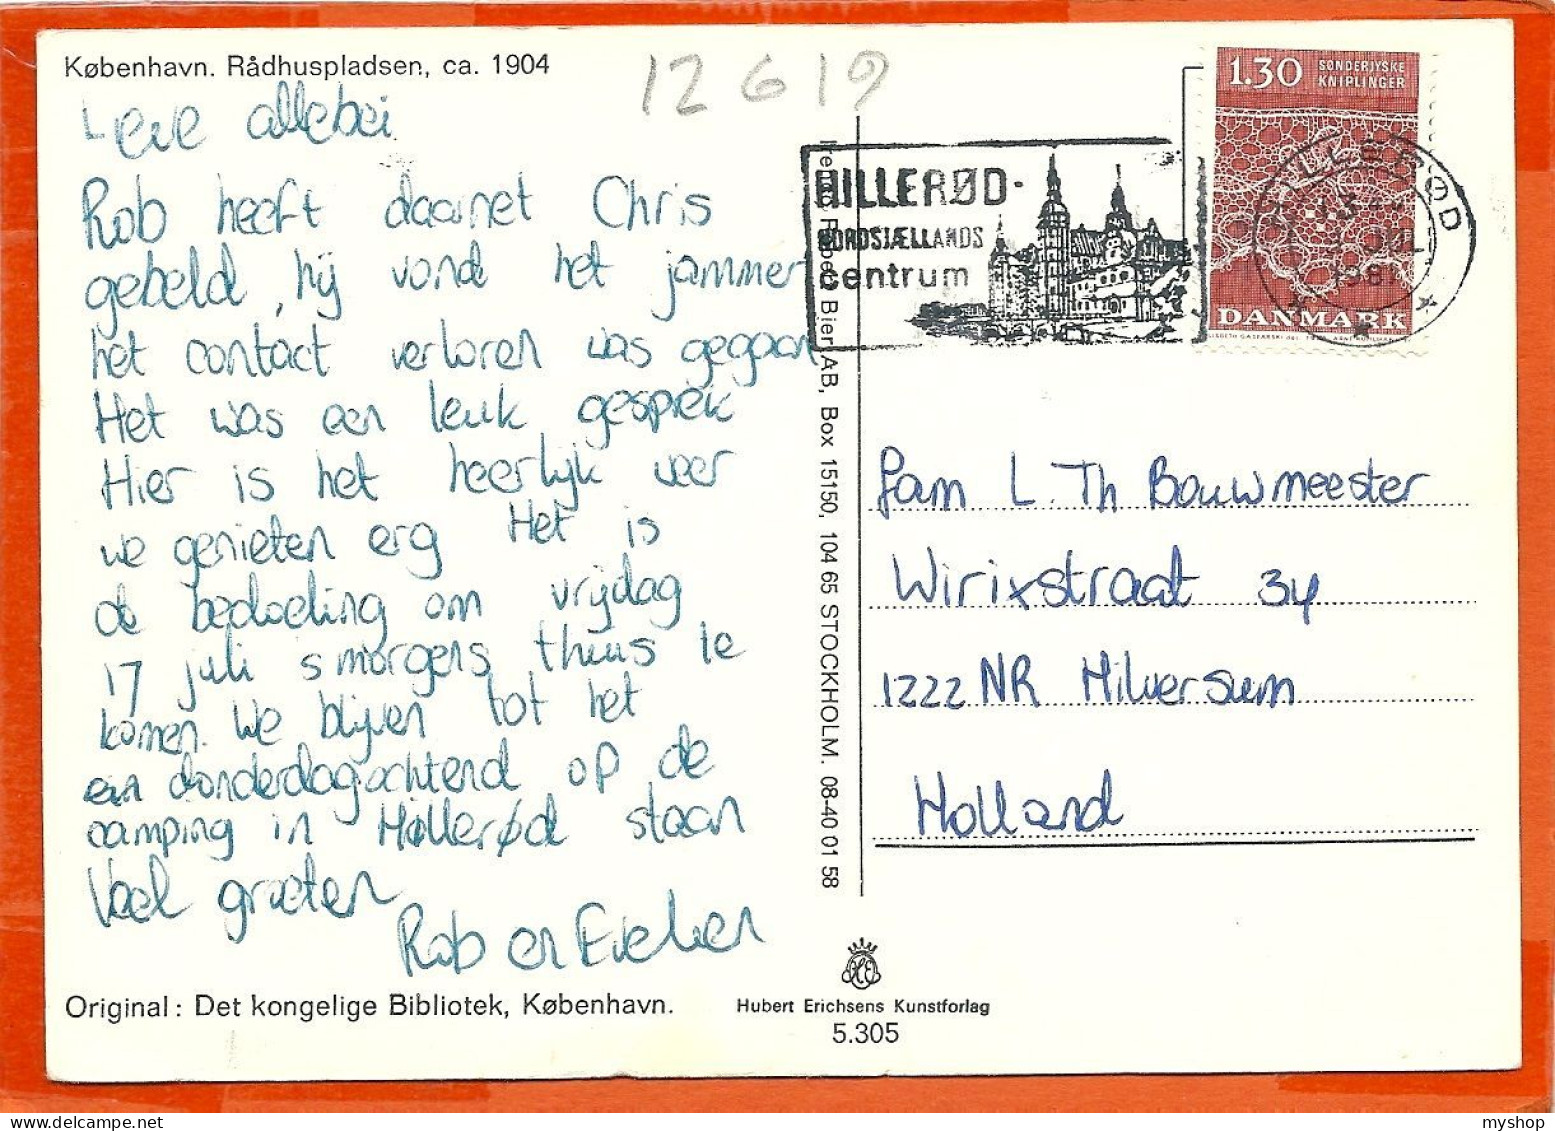 København. Rådhuspladsen, ca. 1904
12619
Leve allebei
Rob heeft daarnet Chris
gebeld, hij vond het jammer
het contact verloren was gegaan
Het was een leuk gesprek
Hier is het heerlijk weer
we genieten erg Het is
de bedoeling om vrijdag
17 juli s morgens thuis te
komen. We blijven tot het
donderdagachtend op de
camping in Hillerød staan
Veel groeten
Rob en Evelien
Original: Det kongelige Bibliotek, København.
Bier AB, Box 15150, 104 65 STOCKHOLM. 08-40 01 58
Hubert Erichsens Kunstforlag
5.305
HILLERØD-
NORDSJÆLLANDS
centrum
1.30 SØNDERJYSKE
KNIPLINGER
DANMARK
HILLERØD
JUL
1981
fam L. Th Bouwmeester
Wirixstraat 34
1222 NR Hilversum
Holland
myshop